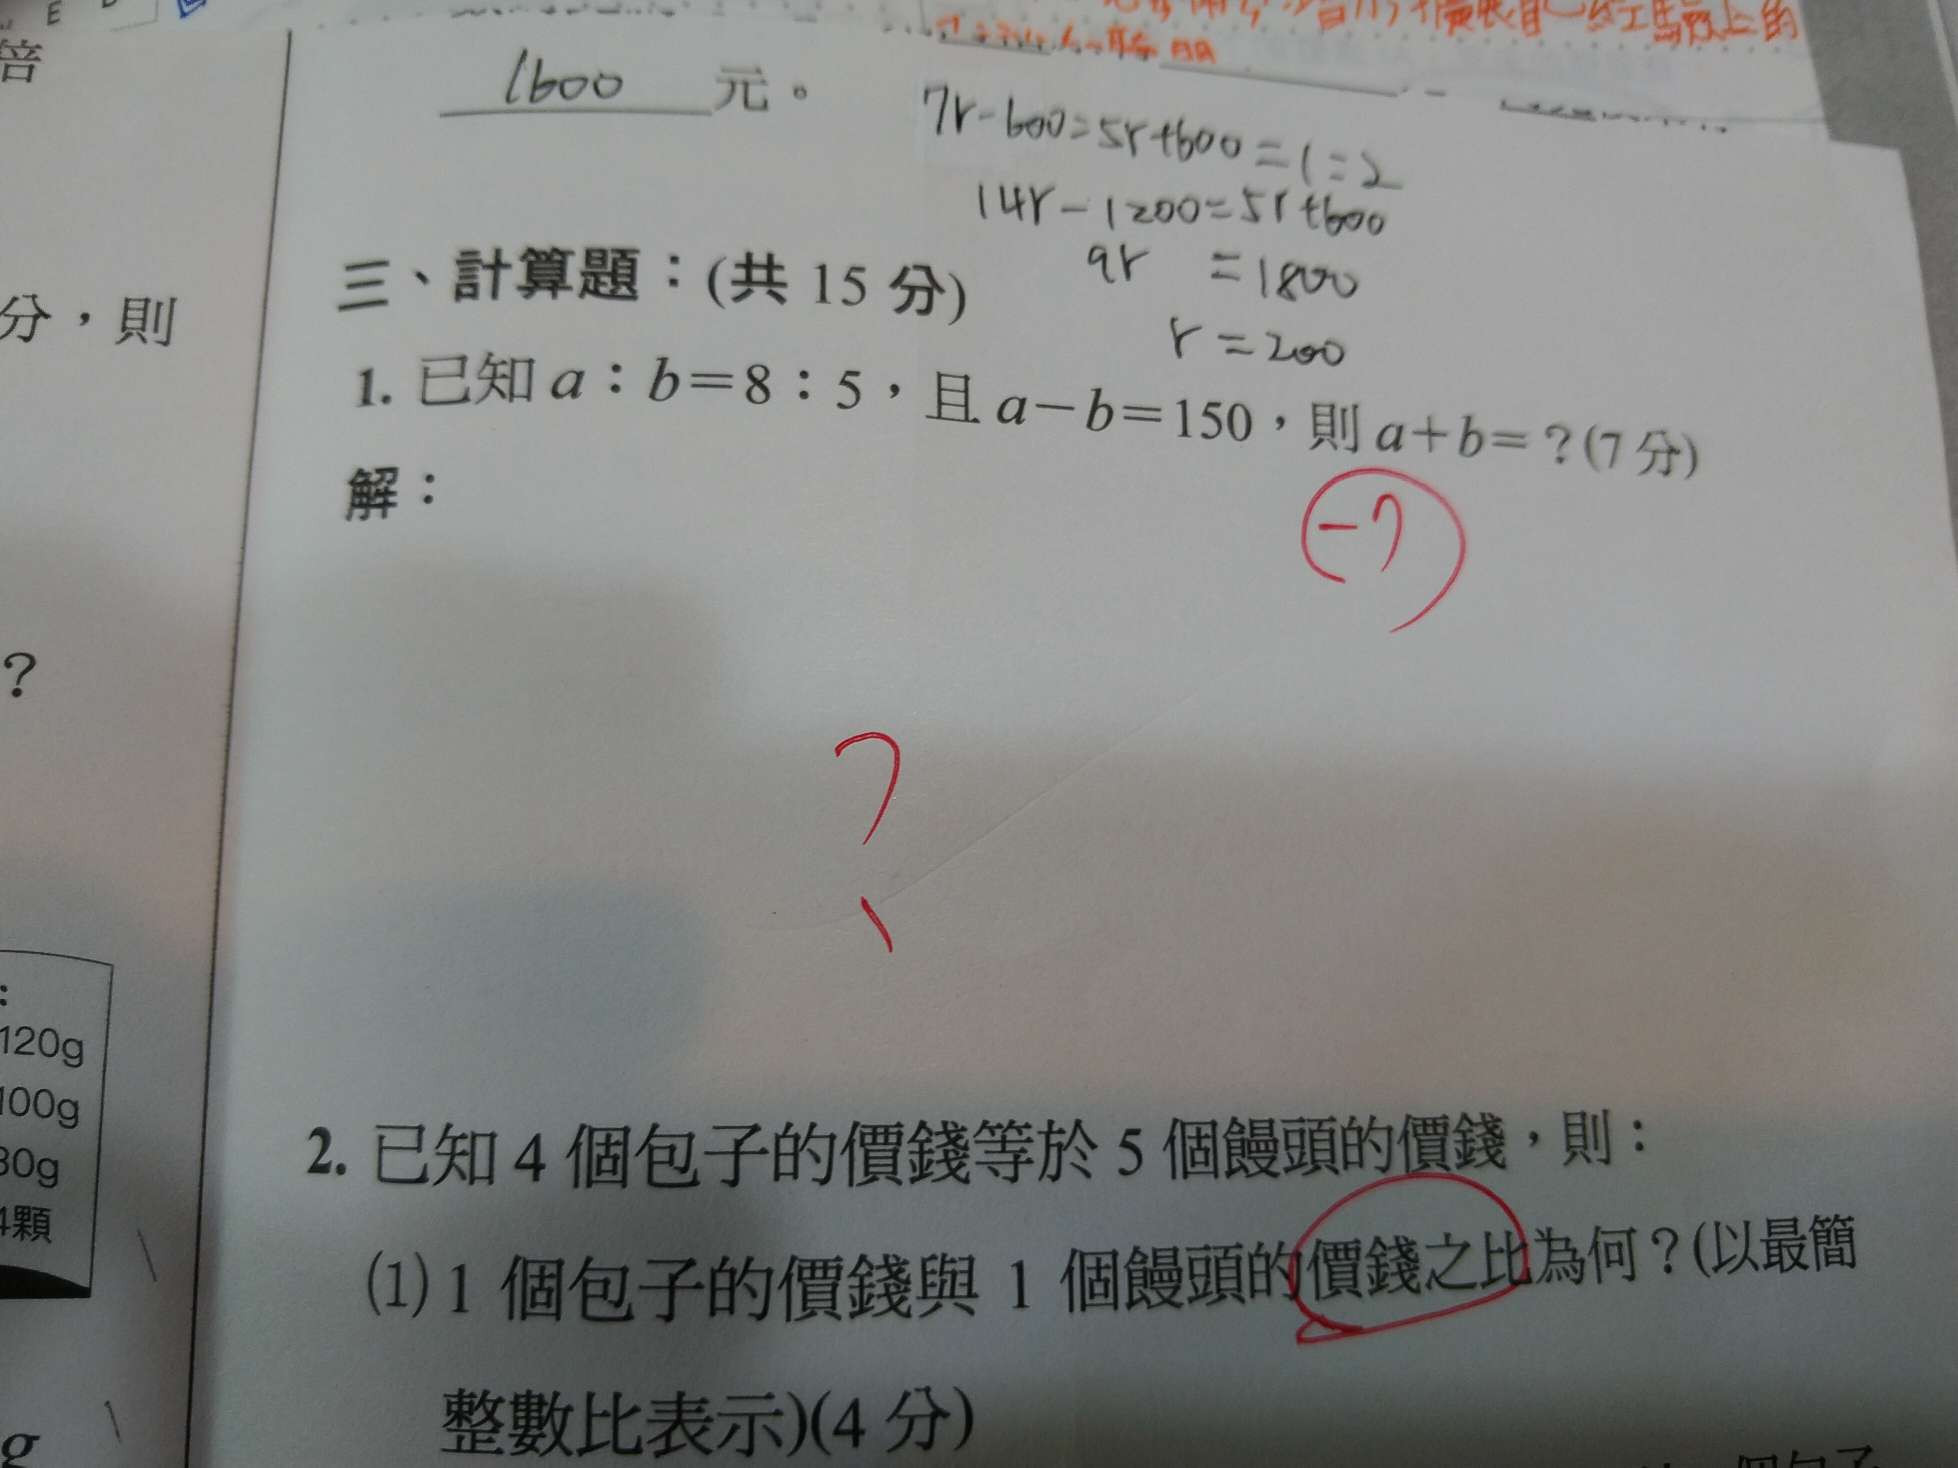 E
倍
分，則
？
：
120g
100g
80g
4顆
g
1600 元。
7r-600=5r+600=1=2
14r-1200=5r+600
9r =1800
r=200
三、計算題：(共 15 分)
1. 已知 a：b＝8：5，且 a－b＝150，則 a＋b＝？(7 分)
解：
-7
?
2. 已知 4 個包子的價錢等於 5 個饅頭的價錢，則：
(1) 1 個包子的價錢與 1 個饅頭的價錢之比為何？(以最簡
整數比表示)(4 分)
個包子